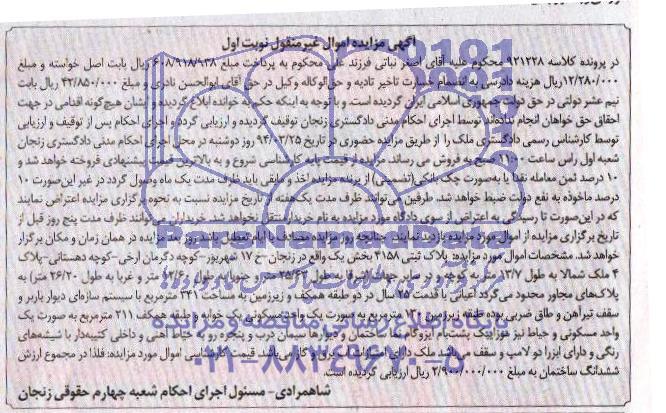 آگهی مزایده اموال غیرمنقول نوبت اول
در پرونده کلاسه ۹۲۱۲۲۸ محکوم علیه آقای اصغر نباتی فرزند علی محکوم به پرداخت مبلغ ۶۰۸/۹۱۸/۹۳۸ ریال بابت اصل خواسته و مبلغ
۱۲/۲۸۰/۰۰۰ ریال هزینه دادرسی به انضمام خسارت تاخیر تادیه و حق‌الوکاله وکیل در حق آقای ابوالحسن نادری و مبلغ ۴۲/۸۵۰/۰۰۰ ریال بابت
نیم عشر دولتی در حق دولت جمهوری اسلامی ایران گردیده است. و با توجه به اینکه حکم به خوانده ابلاغ گردیده و ایشان هیچ‌گونه اقدامی در جهت
احقاق حق خواهان انجام نداده‌اند توسط اجرای احکام مدنی دادگستری زنجان توقیف گردیده و ارزیابی گردد و اجرای احکام پس از توقیف و ارزیابی
توسط کارشناس رسمی دادگستری ملک را از طریق مزایده حضوری در تاریخ ۹۴/۰۳/۲۵ روز دوشنبه در محل اجرای احکام مدنی دادگستری زنجان
شعبه اول راس ساعت ۱۱:۰۰ صبح به فروش می رساند مزایده از قیمت پایه کارشناسی شروع و به بالاترین قیمت پیشنهادی فروخته خواهد شد و
۱۰ درصد ثمن معامله نقدا یا به‌صورت چک بانکی (تضمینی) از برنده مزایده اخذ و مابقی باید ظرف مدت یک ماه وصول گردد در غیر این‌صورت ۱۰
درصد ماخوذه به نفع دولت ضبط خواهد شد. طرفین می‌توانند ظرف مدت یک‌هفته از تاریخ مزایده نسبت به نحوه برگزاری مزایده اعتراض نمایند
که در این‌صورت تا رسیدگی به اعتراض از سوی دادگاه مورد مزایده به نام خریدار منتقل نخواهد شد. خریداران می‌توانند ظرف مدت پنج روز قبل از
تاریخ برگزاری مزایده از اموال مورد مزایده بازدید نمایند. چنانچه روز مزایده مصادف با ایام تعطیل باشد روز بعد مزایده در همان زمان و مکان برگزار
خواهد شد. مشخصات اموال مورد مزایده: پلاک ثبتی ۳۱۵۸ بخش یک واقع در زنجان-خ ۱۷ شهریور-کوچه دگرمان ارخی-کوچه دهستانی-پلاک
۴ ملک شمالا به طول ۱۳/۷ متر به کوچه و در سایر جهات (شرقا به طول ۲۵/۶۳ متر و جنوبا به طول ۱۳/۶۰ متر و غربا به طول ۲۶/۲۰ متر) به
پلاک‌های مجاور محدود می‌گردد اعیانی با قدمت ۲۵ سال در دو طبقه همکف و زیرزمین به مساحت ۳۴۱ مترمربع با سیستم سازه‌ای دیوار باربر و
سقف تیرآهن و طاق ضربی بوده طبقه زیرزمین ۱۳۰ مترمربع به صورت یک واحد مسکونی یک خوابه و طبقه همکف ۲۱۱ مترمربع به صورت یک
واحد مسکونی و حیاط نیز موزاییک پشت‌بام ایزوگام نمای ساختمان و دیوارها سیمان درب و پنجره رو به حیاط آهنی و داخلی کتیبه‌دار با شیشه‌های
رنگی و دارای ابزار دو لامپ و سقف می‌باشد ملک دارای امتیازات آب برق و گاز می‌باشد قیمت کارشناسی اموال مورد مزایده: فلذا در مجموع ارزش
ششدانگ ساختمان به مبلغ ۲/۹۰۰/۰۰۰/۰۰۰ ریال ارزیابی گردیده است.
شاهمرادی - مسئول اجرای احکام شعبه چهارم حقوقی زنجان
ParsNamadData
پایگاه اطلاع رسانی مناقصه و مزایده